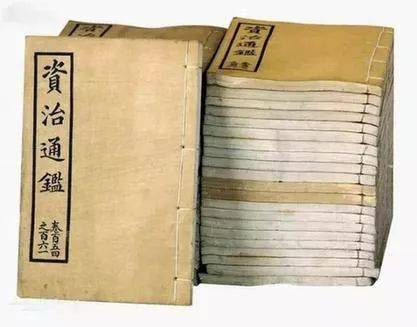 資治通鑑
卷百五四
之百六一
資治通鑑